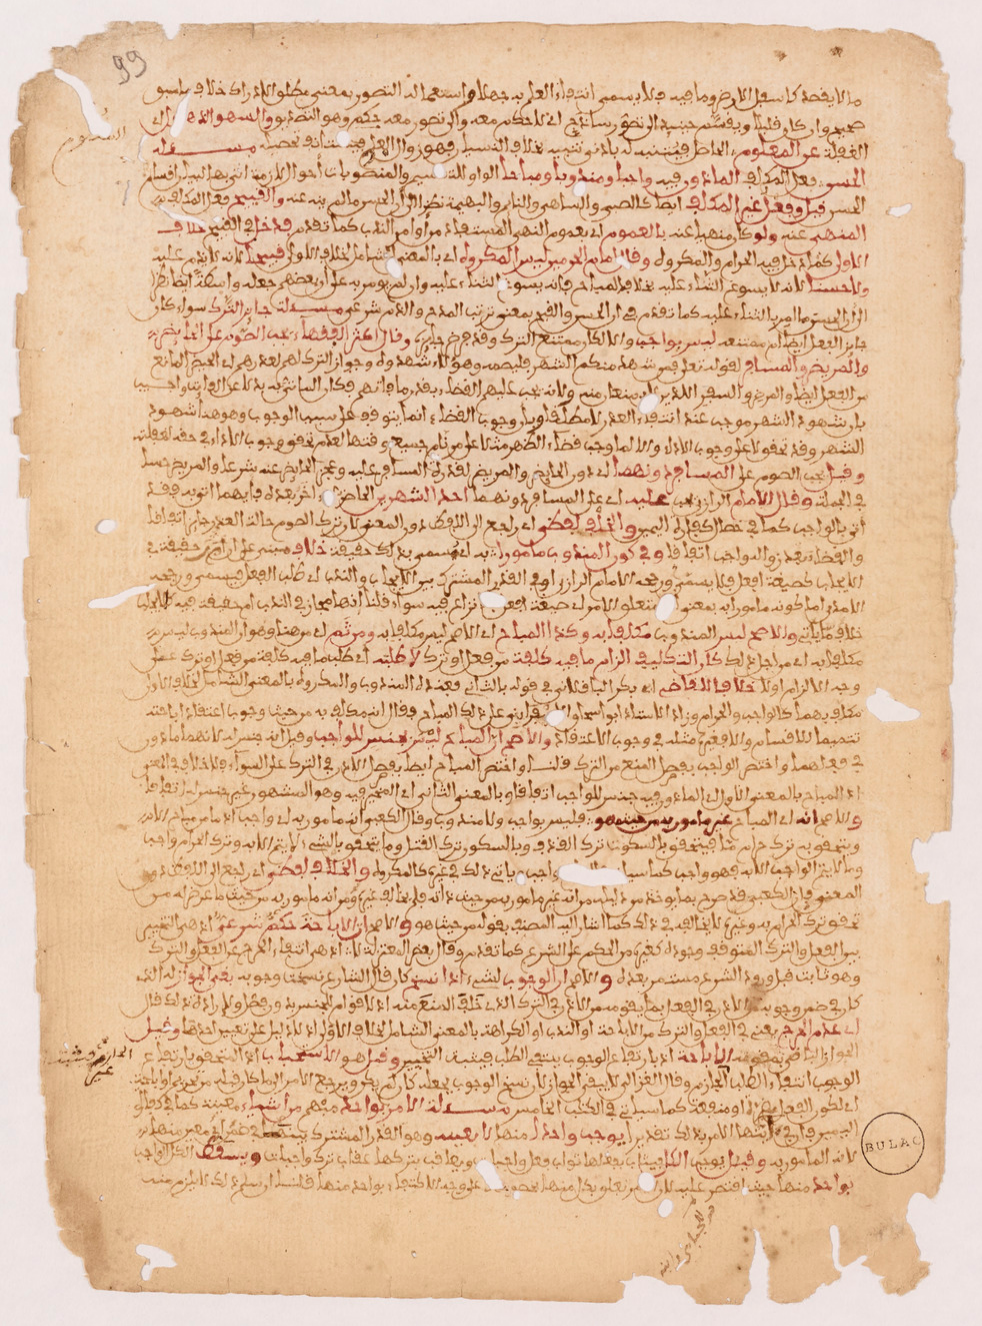 ما لا يقصد كاسفل الارض وما فيه فلا يسمى انتفاء العلم به جهلا واستعماله التصور بمعنى مطلق الادراك خلاف ما سبق
صحيح وان كان قليلا ويقسم حينئذ الى تصور ساذج اي لا حكم معه والى تصور معه حكم وهو التصديق والسهو الذهول اي
الغفلة عن المعلوم الحاصل فيتنبه له بادنى تنبيه بخلاف النسيان فهو زوال المعلوم فيستانف تحصيله مسئلة
الحسن فعل المكلف الماذون فيه واجبا ومندوبا ومباحا الواو للتقسيم والمنصوبات احوال لازمة اتى بها لبيان اقسام
الحسن قيل وفعل غير المكلف ايضا كالصبي والساهي والنائم والبهيمة نظرا الى ان الحسن ما لم ينه عنه والقبيح فعل المكلف
المنهي عنه ولو كان منهيا عنه بالعموم اي بعموم النهي المستفاد من اوامر الندب كما تقدم فدخل في القبيح خلاف
الاولى كما دخل فيه الحرام والمكروه وقال امام الحرمين ليس المكروه اي بالمعنى الشامل لخلاف الاولى قبيحا لانه لا يذم عليه
ولا حسنا لانه لا يسوغ الثناء عليه بخلاف المباح فانه يسوغ الثناء عليه وان لم يومر به على ان بعضهم جعله واسطة ايضا نظرا
الى ان الحسن ما امر بالثناء عليه كما تقدم في ان الحسن والقبح بمعنى ترتب المدح والذم شرعي مسئلة جايز الترك سواء كان
جايز الفعل ايضا ام ممتنعه ليس بواجب والا لكان ممتنع الترك وقد فرض جايزه وقال اكثر الفقهاء يجب الصوم على الحايض
والمريض والمسافر لقوله تعلى فمن شهد منكم الشهر فليصمه وهؤلاء شهدوه وجواز الترك لهم لعذرهم اي الحيض المانع
من الفعل ايضا والمرض والسفر اللذين لا يمنعان منه ولانه يجب عليهم القضاء بقدر ما فاتهم فكان الماتي به بدلا عن الفايت واجيب
بان شهود الشهر موجب عند انتفاء العذر لا مطلقا وبان وجوب القضاء انما يتوقف على سبب الوجوب وهو هنا شهود
الشهر وقد تحقق لا على وجوب الاداء والا لما وجب قضاء الظهر مثلا على من نام جميع وقتها لعدم تحقق وجوب الاداء في حقه لغفلته
وقيل يجب الصوم على المسافر دونهما اي دون الحايض والمريض لقدرة المسافر عليه وعجز الحايض عنه شرعا والمريض حسا
في الجملة وقال الامام الرازي يجب عليه اي على المسافر دونهما احد الشهرين الحاضر اخر بعده فايهما اتى به فقد
اتى بالواجب كما في خصال كفارة اليمين والخلف لفظي اي راجع الى اللفظ دون المعنى لان ترك الصوم حالة العذر جايز اتفاقا
والقضاء بعد زواله واجب اتفاقا وفي كون المندوب مامورا به اي يسمى بذلك حقيقة خلاف مبني على ان امر حقيقة في
الايجاب كصيغة افعل فلا يسمى ورجحه الامام الرازي او في القدر المشترك بين الايجاب والندب اي طلب الفعل فيسمى ورجحه
الامدي اما كونه مامورا به بمعنى متعلق الامر اي صيغة افعل نزاع فيه سواء قلنا انها مجاز في الندب ام حقيقة فيه كالايجاب
خلاف ياتي والاصح ليس المندوب مكلفا به وكذا المباح اي الاصح ليس مكلفا به ومن ثم اي من هنا وهو ان المندوب ليس
مكلفا به اي من اجل ذلك كان التكليف الزام ما فيه كلفة من فعل او ترك لا طلبه اي طلب ما فيه كلفة من فعل او ترك على
وجه الالزام او لا خلافا للقاضي ابي بكر الباقلاني في قوله بالثاني فعنده المندوب والمكروه بالمعنى الشامل لخلاف الاولى
مكلف بهما كالواجب والحرام وزاد الاستاذ ابو اسحاق الاسفرايني على ذلك المباح فقال انه مكلف به من حيث وجوب اعتقاد اباحته
تتميما للاقسام والا فغيره مثله في وجوب الاعتقاد والاصح ان المباح ليس بجنس للواجب وقيل انه جنس له لانهما ماذون
في فعلهما واختص الواجب بفصل المنع من الترك قلنا واختص المباح ايضا بفصل الاذن في الترك على السواء فلا خلاف في المعنى
اذ المباح بالمعنى الاول اي الماذون فيه جنس للواجب اتفاقا وبالمعنى الثاني اي المخير فيه وهو المشهور غير جنس له اتفاقا
والاصح انه اي المباح غير مامور به من حيث هو فليس بواجب ولا مندوب وقال الكعبي انه مامور به اي واجب اذ ما من مباح الا
ويتحقق به ترك حرام ما فيتحقق بالسكوت ترك القذف وبالسكون ترك القتل وما يتحقق بالشيء لا يتم الا به وترك الحرام واجب
وما لا يتم الواجب الا به فهو واجب كما سيا واجب وياتي ذلك في غيره كالمكروه والخلف لفظي اي راجع الى اللفظ دون
المعنى فان الكعبي قد صرح بما يوخذ من دليله من انه غير مامور به من حيث ذاته فلم يخالف غيره ومن انه مامور به من حيث ما عرض له من
تحقق ترك الحرام به وغيره لا يخالفه في ذلك كما اشار اليه المصنف بقوله من حيث هو والاصح ان الاباحة حكم شرعي اذ هي التخيير
بين الفعل والترك المتوقف وجوده كغيره من الحكم على الشرع كما تقدم وقال بعض المعتزلة لا اذ هي انتفاء الحرج عن الفعل والترك
وهو ثابت قبل ورود الشرع مستمر بعده والاصح ان الوجوب لشيء اذا نسخ كان قال الشارع نسخت وجوبه بقي الجواز له الذي
كان في ضمن وجوبه من الاذن في الفعل بما يقومه من الاذن في الترك الذي خلف المنع منه اذ لا قوام للجنس بدون فصل ولارادة ذلك قال
اي عدم الحرج يعني في الفعل والترك من الاباحة او الندب او الكراهة بالمعنى الشامل لخلاف الاولى اذ لا دليل على تعيين احدها وقيل
الجواز الباقي بمقومه الاباحة اذ بارتفاع الوجوب ينتفي الطلب فيثبت التخيير وقيل هو الاستحباب اذ المتحقق بارتفاع
الوجوب انتفاء الطلب الجازم وقال الغزالي لا يبقى الجواز لان نسخ الوجوب يجعله كان لم يكن ويرجع الامر لما كان قبله من تحريم او اباحة
اي لكون الفعل مضرة او منفعة كما سياتي في الكتاب الخامس مسئلة الامر بواحد مبهم من اشياء معينة كما في كفارة
اليمين فان في ايتها الامر بذلك تقديرا يوجب واحدا منها لا بعينه وهو القدر المشترك بينها في ضمن اي معين منها
لانه المامور به وقيل يوجب الكل فيثاب بفعلها ثواب فعل واجبات ويعاقب بتركها عقاب ترك واجبات ويسقط الكل الواجب
بواحد منها حيث اقتصر عليه لان الامر تعلق بكل منها بخصوصه على وجه الاكتفاء بواحد منها قلنا ان سلم ذلك لا يلزم منه